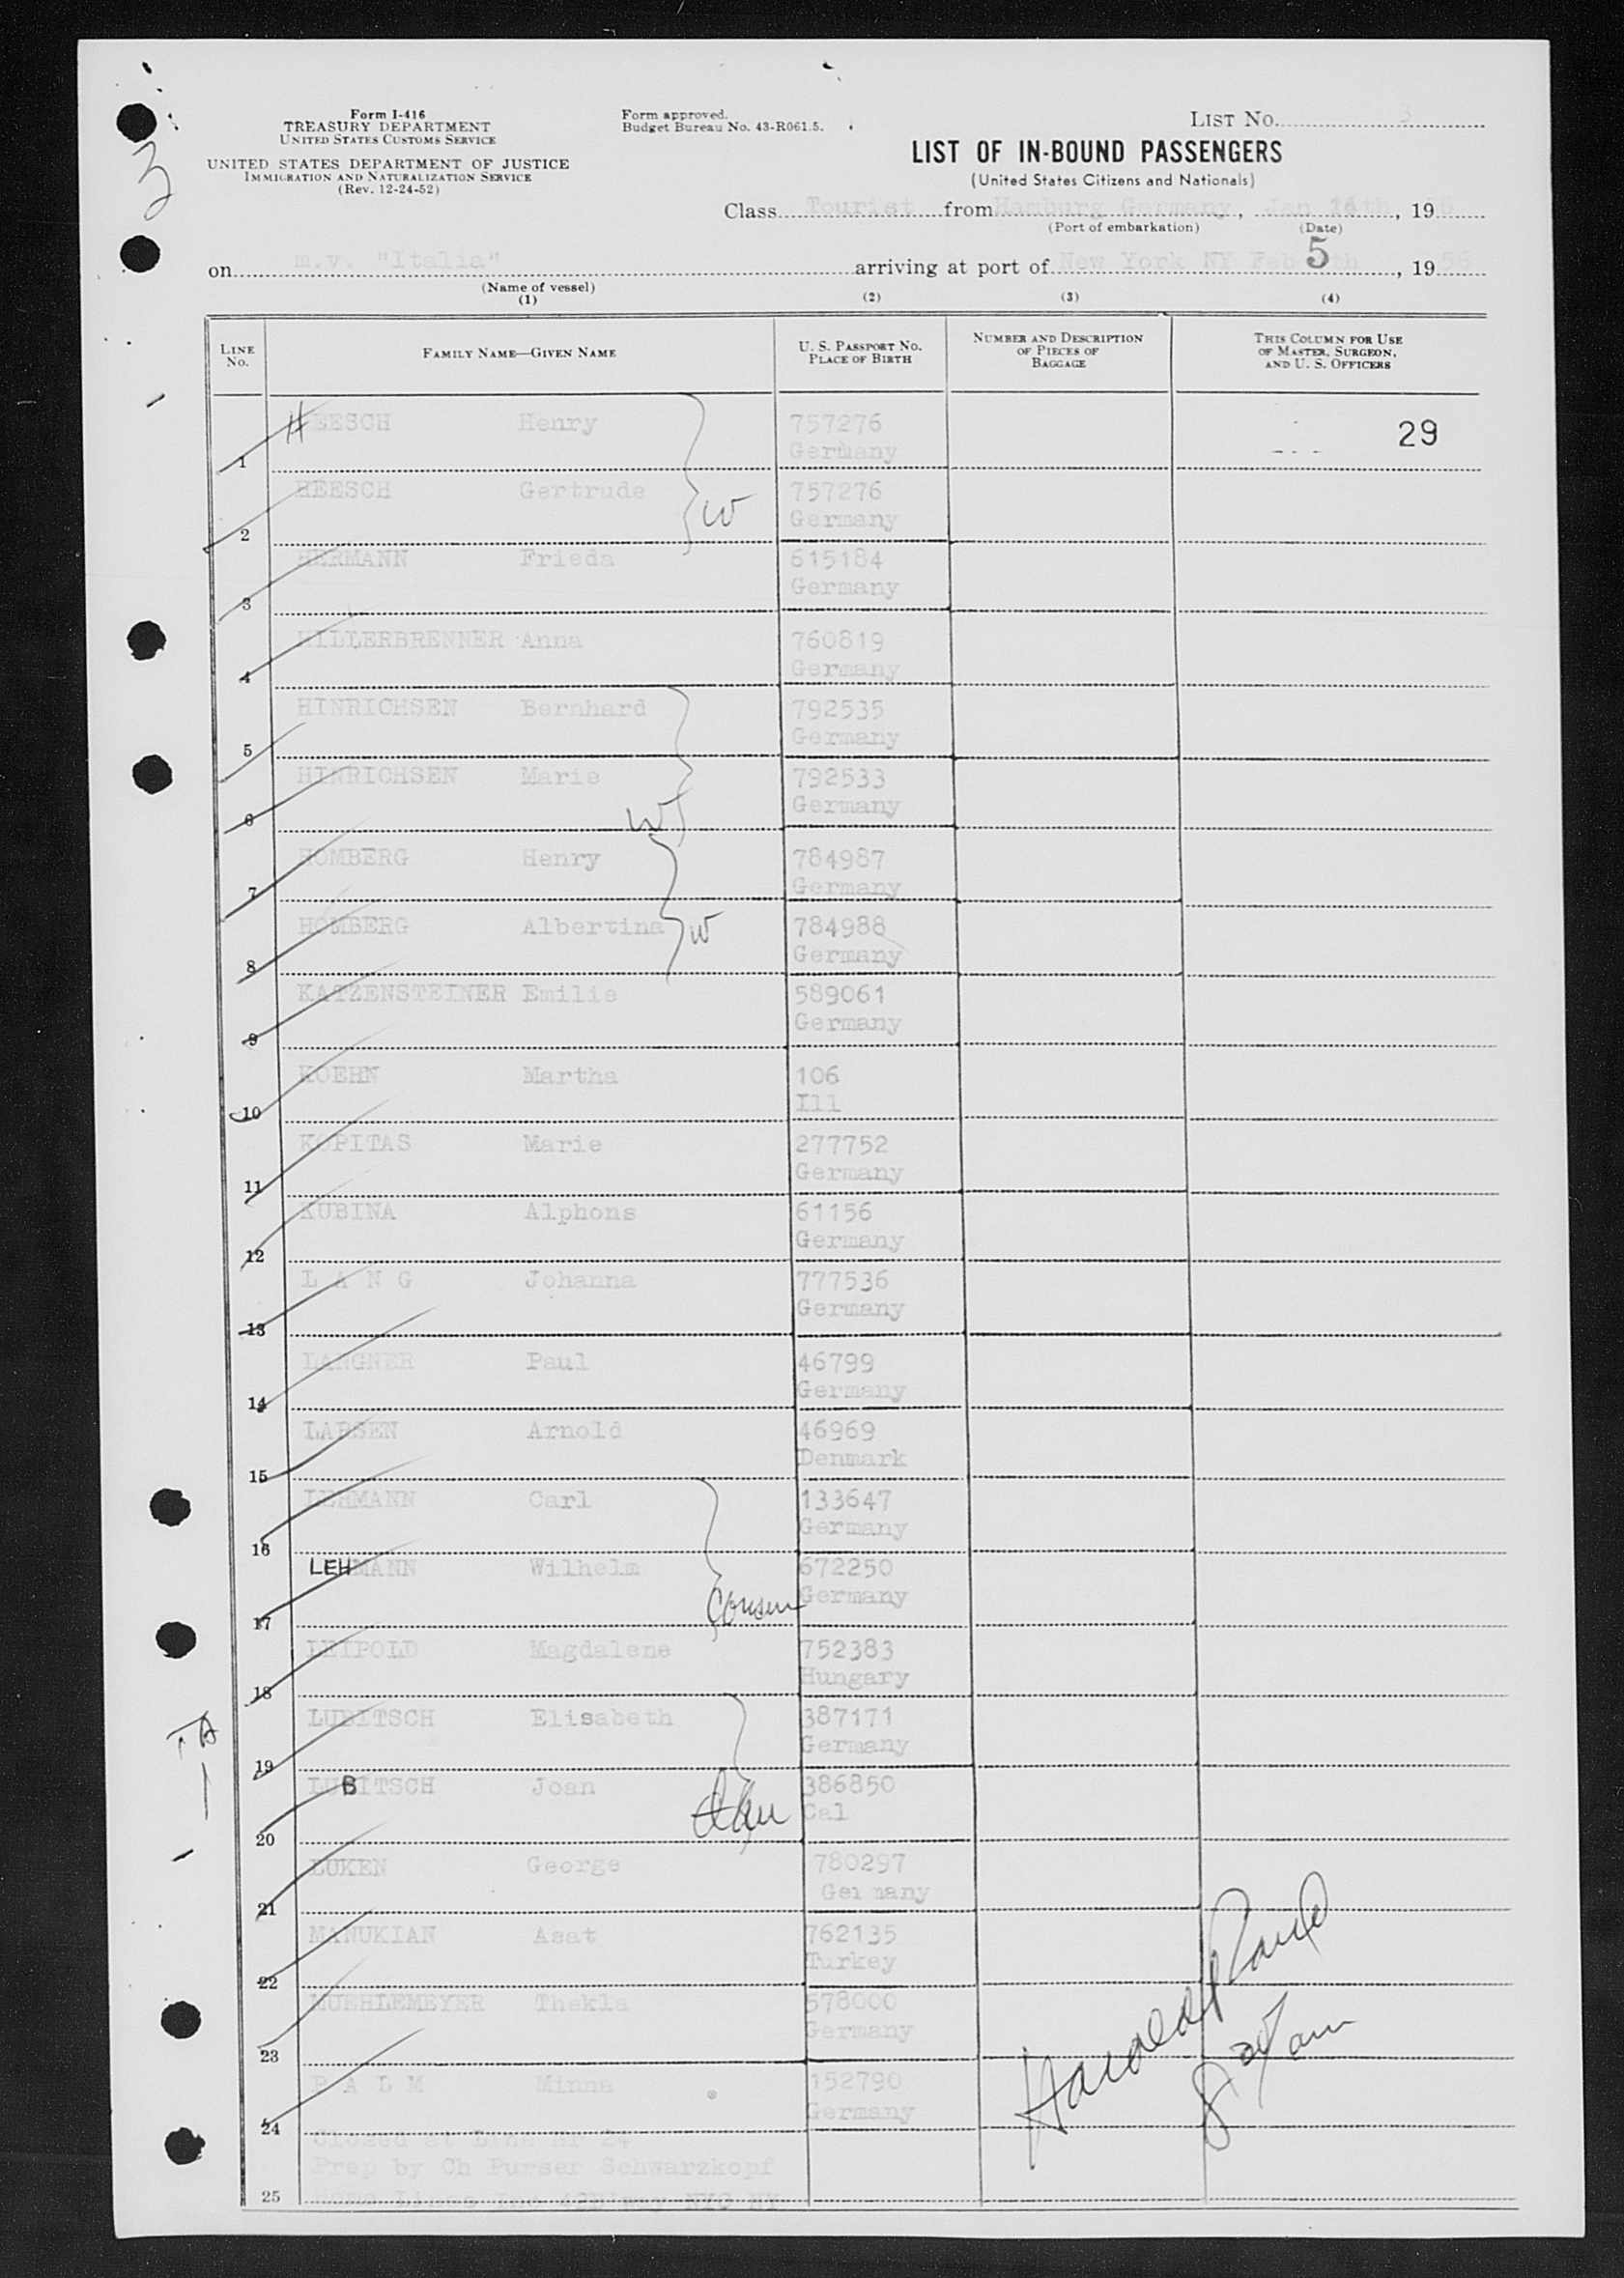 3
Form I-416
TREASURY DEPARTMENT
UNITED STATES CUSTOMS SERVICE
UNITED STATES DEPARTMENT OF JUSTICE
IMMIGRATION AND NATURALIZATION SERVICE
(Rev. 12-24-52)
Form approved.
Budget Bureau No. 43-R061.5.
LIST NO. 3
LIST OF IN-BOUND PASSENGERS
(United States Citizens and Nationals)
Class Tourist from Hamburg Germany, Jan, 19
(Port of embarkation) (Date)
on m.v. "Italia" arriving at port of New York NY Feb 5th, 1956
(Name of vessel)
(1) (2) (3) (4)
LINE NO.
FAMILY NAME—GIVEN NAME
U. S. PASSPORT NO.
PLACE OF BIRTH
NUMBER AND DESCRIPTION
OF PIECES OF
BAGGAGE
THIS COLUMN FOR USE
OF MASTER, SURGEON,
AND U. S. OFFICERS
1 HEESCH Henry 757276 29
Germany
2 HEESCH Gertrude W 757276
Germany
3 HERMANN Frieda 615184
Germany
4 HILLERBRENNER Anna 760819
Germany
5 HINRICHSEN Bernhard 792535
Germany
6 HINRICHSEN Marie W 792533
Germany
7 HOMBERG Henry 784987
Germany
8 HOMBERG Albertina W 784988
Germany
9 KATZENSTEINER Emilie 589061
Germany
10 KOEHN Martha 106
Ill
11 KOPITAS Marie 277752
Germany
12 KUBINA Alphons 61156
Germany
13 L A N G Johanna 777536
Germany
14 LANGNER Paul 46799
Germany
15 LARSEN Arnold 46969
Denmark
16 LEHMANN Carl 133647
Germany
17 LEHMANN Wilhelm Cousin 672250
Germany
18 LEIPOLD Magdalene 752383
Hungary
19 LUBITSCH Elisabeth 387171
Germany
20 LUBITSCH Joan 386850
Cal
21 LUKEN George 780297
Germany
22 MANUKIAN Asat 762135
Turkey
23 MUEHLEMEYER Thekla 578000
Germany
24 P A L M Minna 152790
Germany
Closed at Line Nr 24
Prep by Ch Purser Schwarzkopf
25 Home Lines Inc 42B'way NYC NY
Harold
am